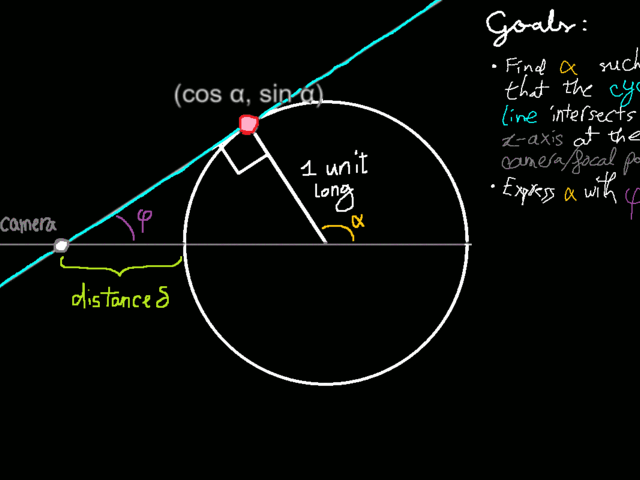 Goals:
• Find α such
that the
line intersects
x-axis at the
camera/focal
• Express α with φ
(cos α, sin α)
1 unit
long
α
camera
φ
distance δ